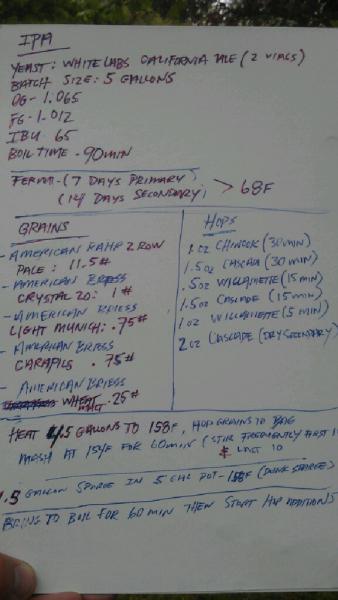 IPA
YEAST: WHITE LABS CALIFORNIA ALE (2 VIALS)
BATCH SIZE: 5 GALLONS
OG- 1.065
FG- 1.012
IBU 65
BOIL TIME - 90MIN
FERM- (7 DAYS PRIMARY)
(14 DAYS SECONDARY) > 68F
GRAINS
- AMERICAN RAHR 2 ROW
PALE: 11.5#
- AMERICAN BRIESS
CRYSTAL 20: 1#
- AMERICAN BRIESS
LIGHT MUNICH: .75#
- AMERICAN BRIESS
CARAPILS .75#
- AMERICAN BRIESS
WHEAT MALT .25#
HOPS
1 oz CHINOOK (30 MIN)
1.5 oz CASCADE (30 MIN)
.5oz WILLAMETTE (15 MIN)
1.5oz CASCADE (15 MIN)
1 oz WILLAMETTE (5 MIN)
2 oz CASCADE (DRY SECONDARY)
HEAT 4.5 GALLONS TO 158F, ADD GRAINS TO BAG
MASH AT 154F FOR 60MIN (STIR FREQUENTLY FIRST
& LAST 10
1.5 GALLON SPARGE IN 5 GAL POT - 158F (DUNK SPARGE)
BRING TO BOIL FOR 60 MIN THEN START HOP ADDITIONS